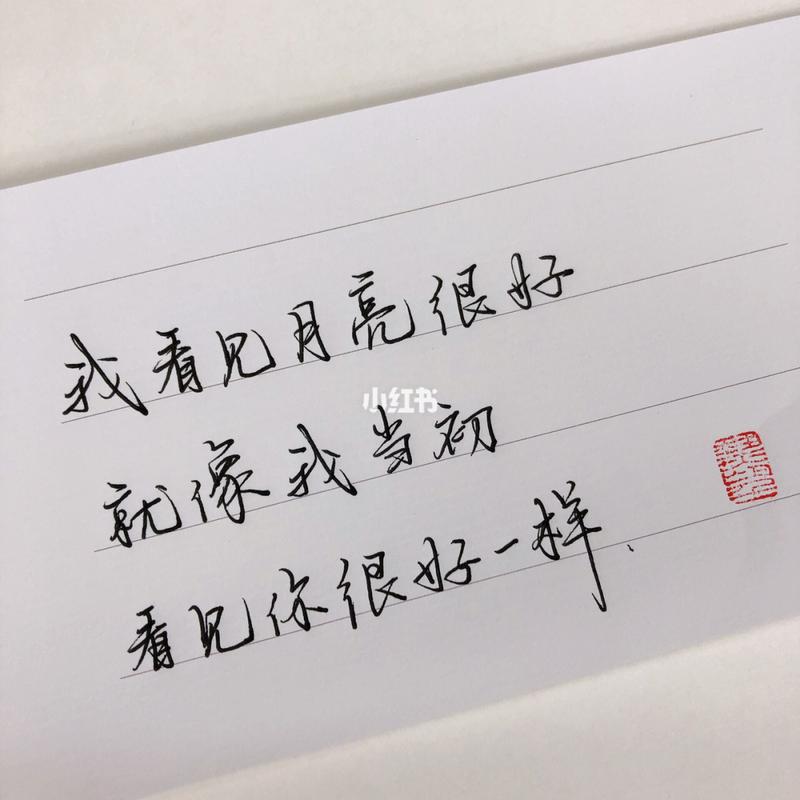 我看见月亮很好
小红书
就像我当初
看见你很好一样、